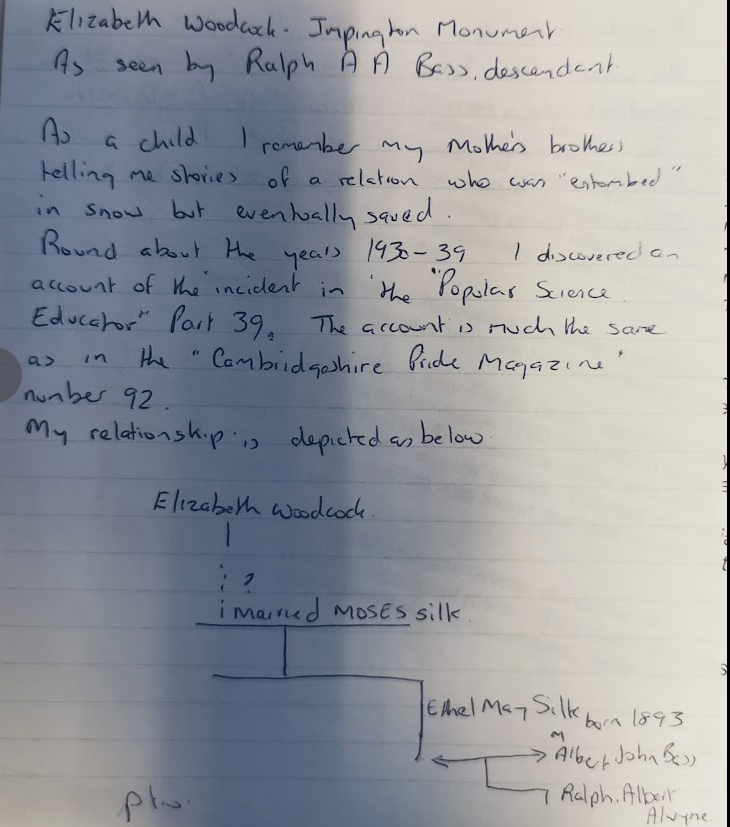 Elizabeth Woodcock. Impington Monument
As seen by Ralph A A Bass, descendant.
As a child I remember my Mothers brothers
telling me stories of a relation who was "entombed"
in snow but eventually saved.
Round about the years 1930-39 I discovered an
account of the incident in the "Popular Science
Educator" Part 39. The account is much the same
as in the "Cambridgeshire Pride Magazine"
number 92.
My relationship is depicted as below.
Elizabeth Woodcock.
?
married MOSES silk.
Ethel May Silk born 1893
m
Albert John Bass
Ralph. Albert
Alwyne.
pto.